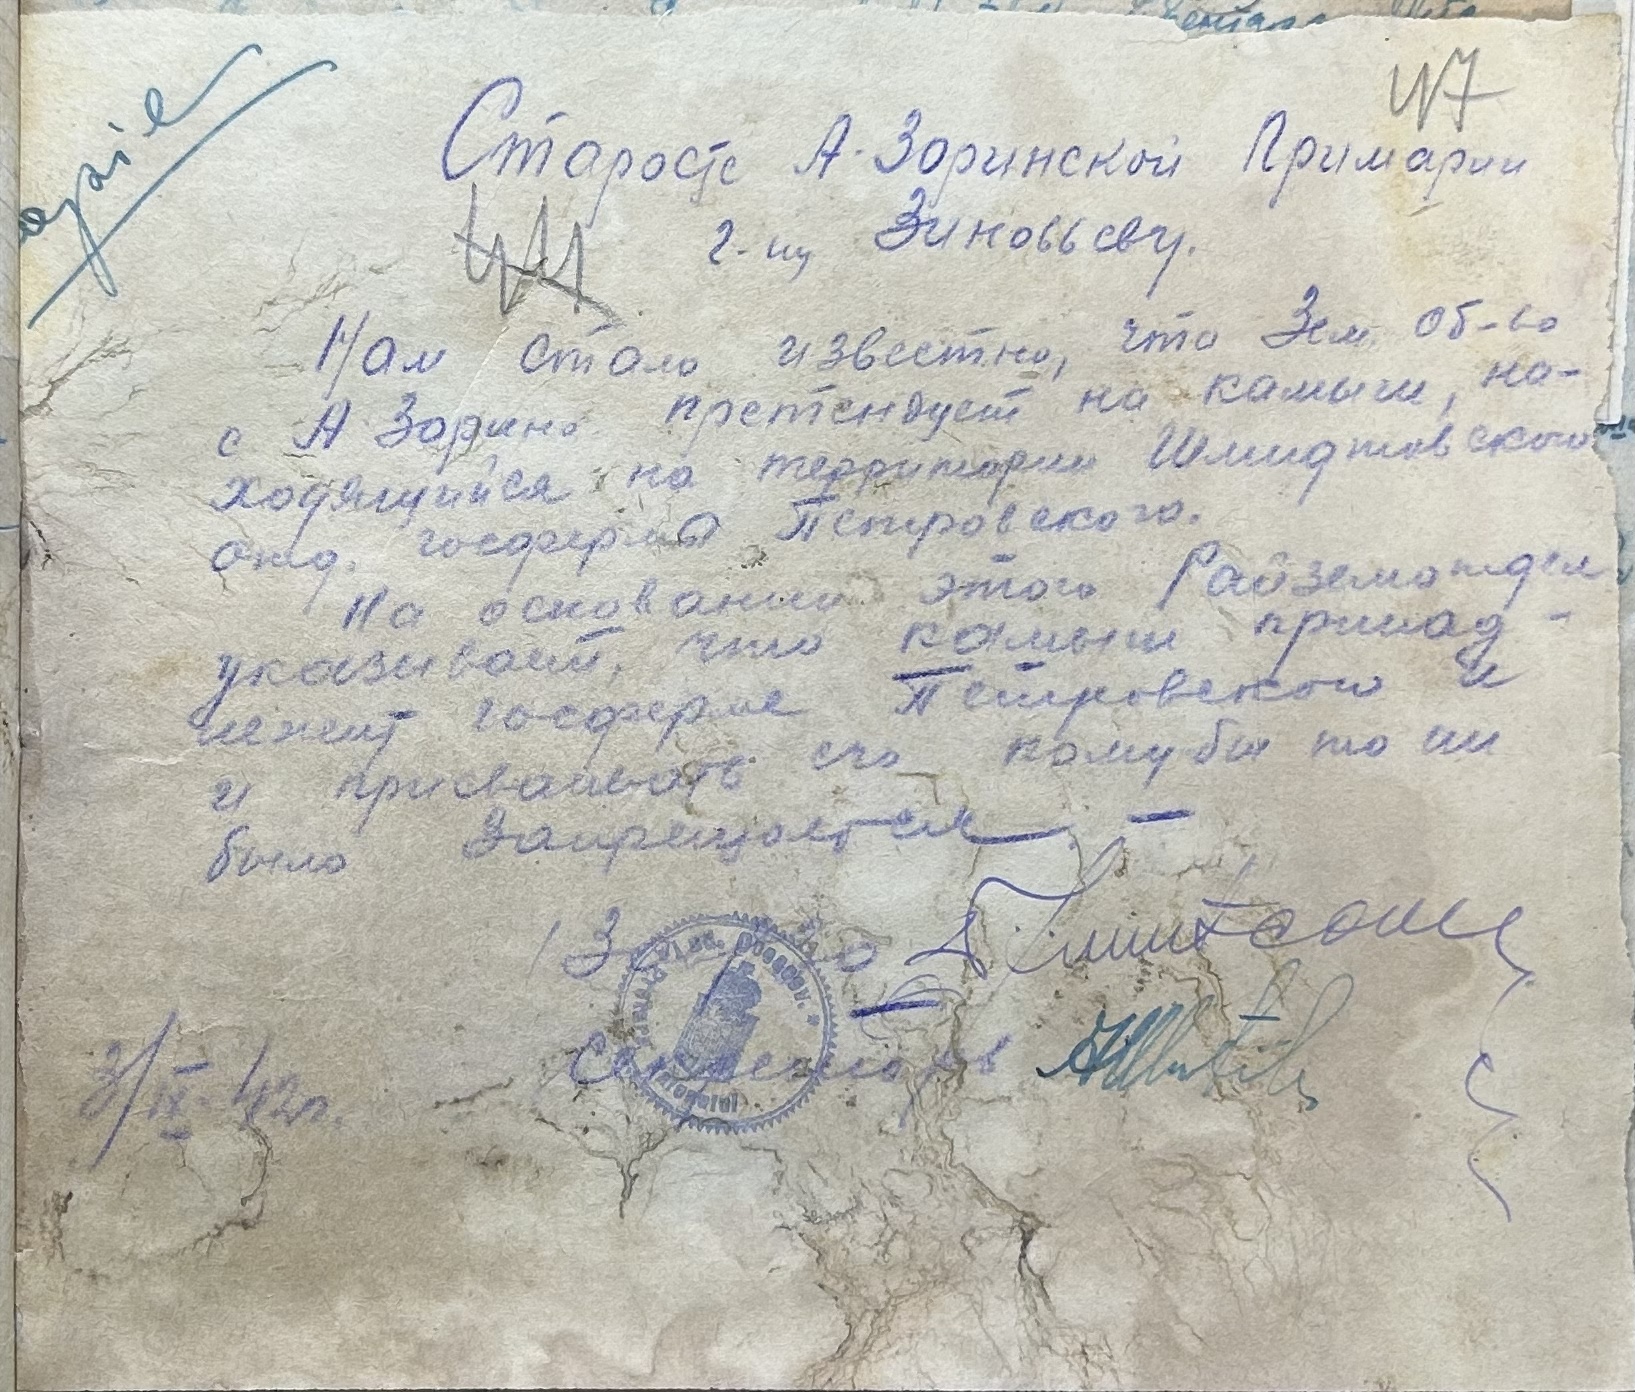 47
Старосте А-Зоринской Примарии
г-ну Зиновьеву.
Нам стало известно, что Зем. об-во
с А Зорино претендует на камыш, на-
ходящийся на территории Шмидтовского
отд. госфермы Петровского.
На основании этого Райземотдел
указывает, что камыш принад-
лежит госферме Петровского и
и присваивать его кому бы то ни
было запрещается —
Секретарь
3/IX-42г.